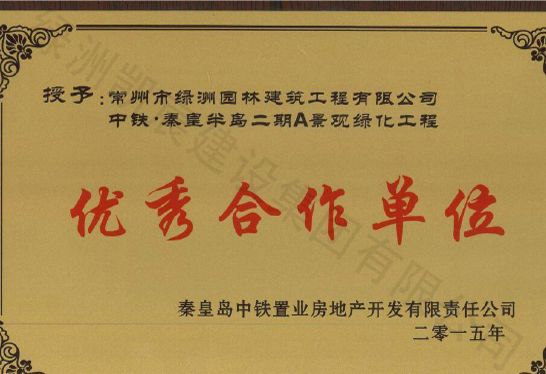 授予:常州市绿洲园林建筑工程有限公司
中铁·秦皇半岛二期A景观绿化工程
优秀合作单位
秦皇岛中铁置业房地产开发有限责任公司
二零一五年